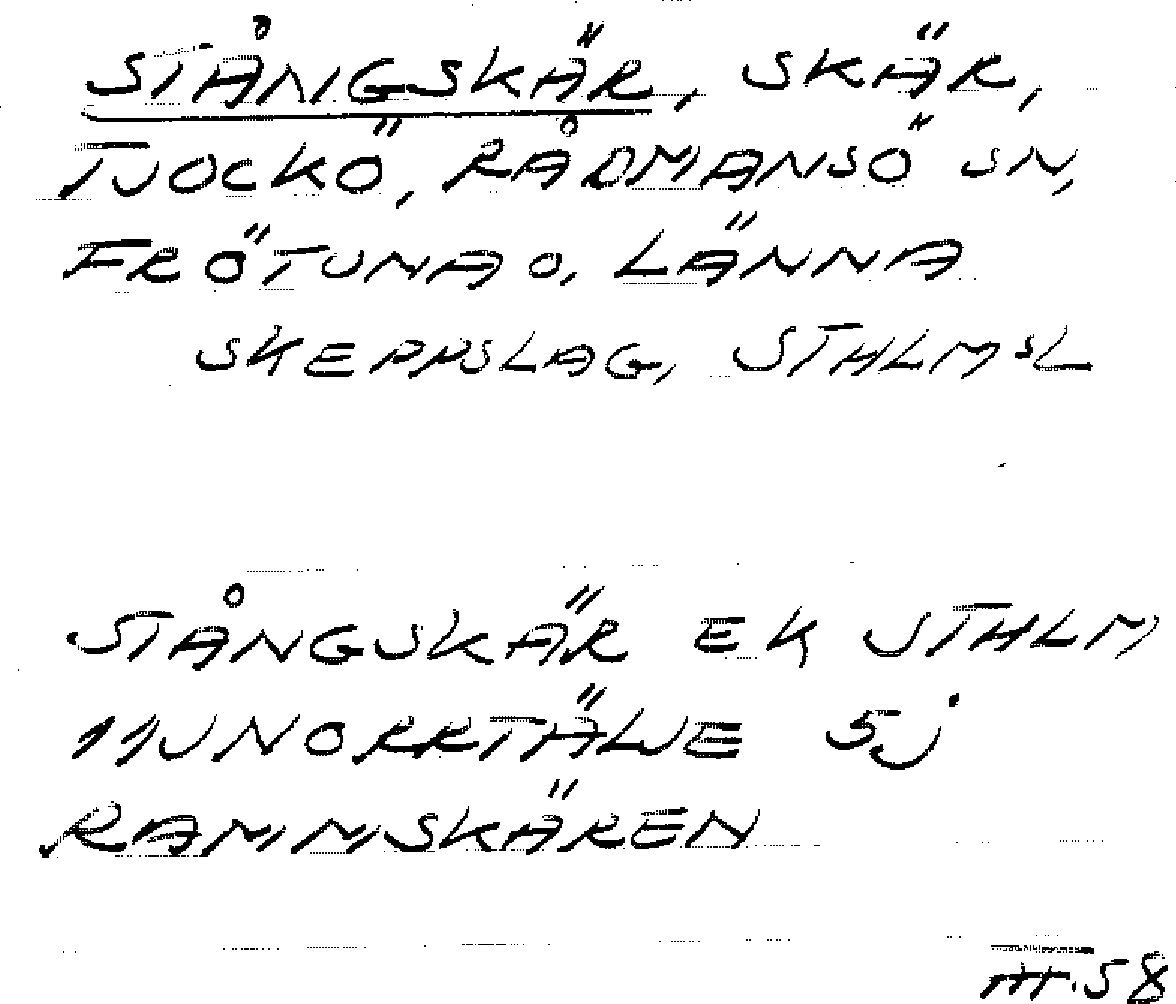 STÅNGSKÄR, SKÄR,
TJOCKÖ, RÅDMANSÖ SN,
FRÖTUNA O. LÄNNA
SKEPPSLAG, STHLMSL
STÅNGSKÄR EK STHLM
11J NORRTÄLJE 5j
RAMMSKÄREN
58